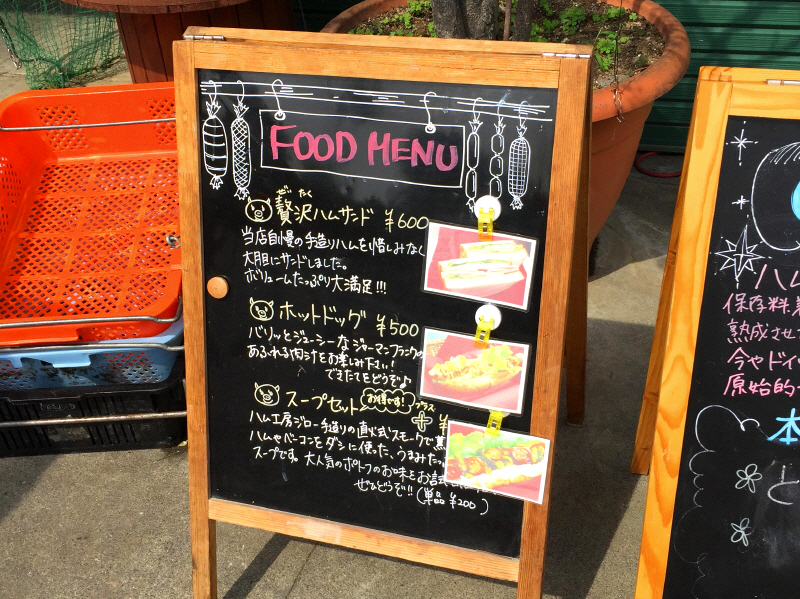 FOOD MENU
ぜいたく
贅沢ハムサンド ¥600
当店自慢の手造りハムを惜しみなく
大胆にサンドしました。
ボリュームたっぷり大満足!!!
ホットドッグ ¥500
パリッとジューシーなジャーマンフランクの
あふれる肉汁をお楽しみ下さい!
できたてをどうぞ♪
スープセット お得です! プラス + ¥
ハム工房ジロー手造りの直火式スモークで
ハムやベーコンをダシに使った、うまみたっ
スープです。大人気のポトフのお味をお試し
ぜひどうぞ!! (単品 ¥200)
ハム
保存料
熟成させ
今やドイ
原始的
本